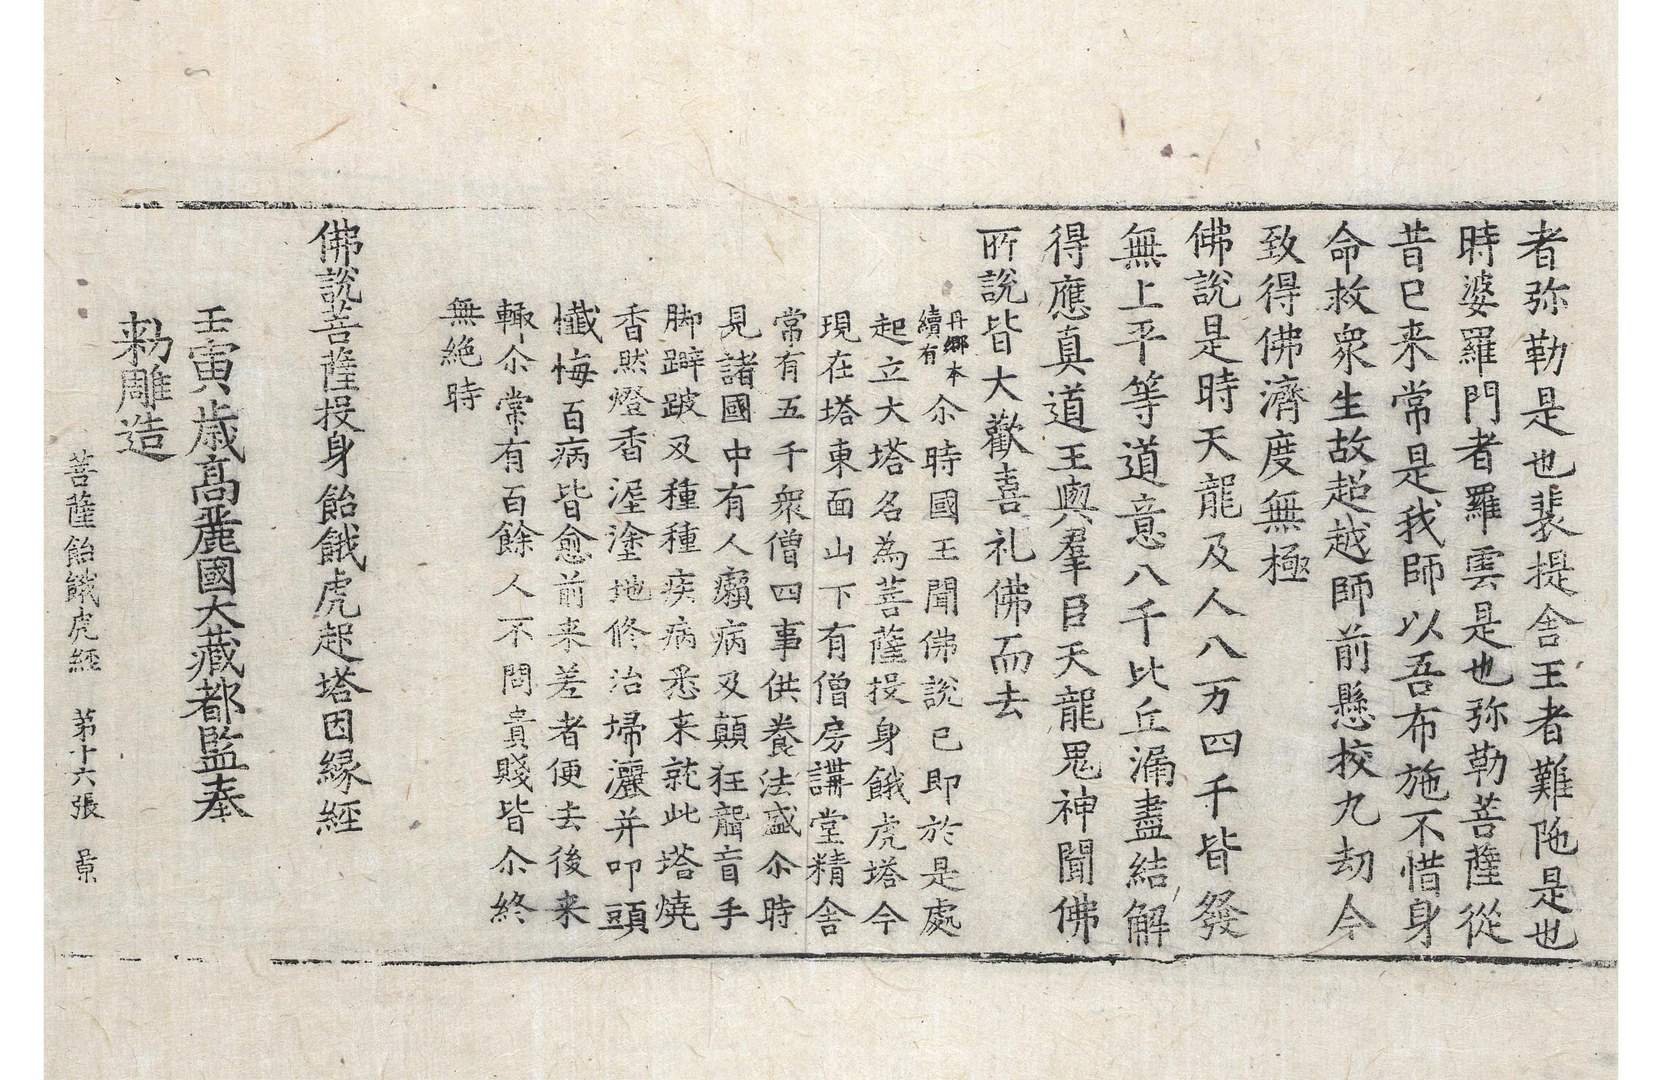 者弥勒是也裴提舍王者難陁是也
時婆羅門者羅雲是也弥勒菩薩從
昔已来常是我師以吾布施不惜身
命救衆生故超越師前懸挍九劫今
致得佛濟度無極
佛說是時天龍及人八万四千皆發
無上平等道意八千比丘漏盡結解
得應真道王與羣臣天龍鬼神聞佛
所說皆大歡喜礼佛而去
丹鄉本續有尒時國王聞佛說已即於是處
起立大塔名為菩薩投身餓虎塔今
現在塔東面山下有僧房講堂精舍
常有五千衆僧四事供養法盛尒時
見諸國中有人癩病及顛狂聾盲手
脚躃跛及種種疾病悉来就此塔燒
香然燈香渥塗地修治埽灑并叩頭
懺悔百病皆愈前来差者便去後来
輙尒常有百餘人不問貴賤皆尒終
無絶時
佛說菩薩投身飴餓虎起塔因縁經
壬寅歳高麗國大藏都監奉
勑雕造
菩薩飴餓虎經　第十六張　景